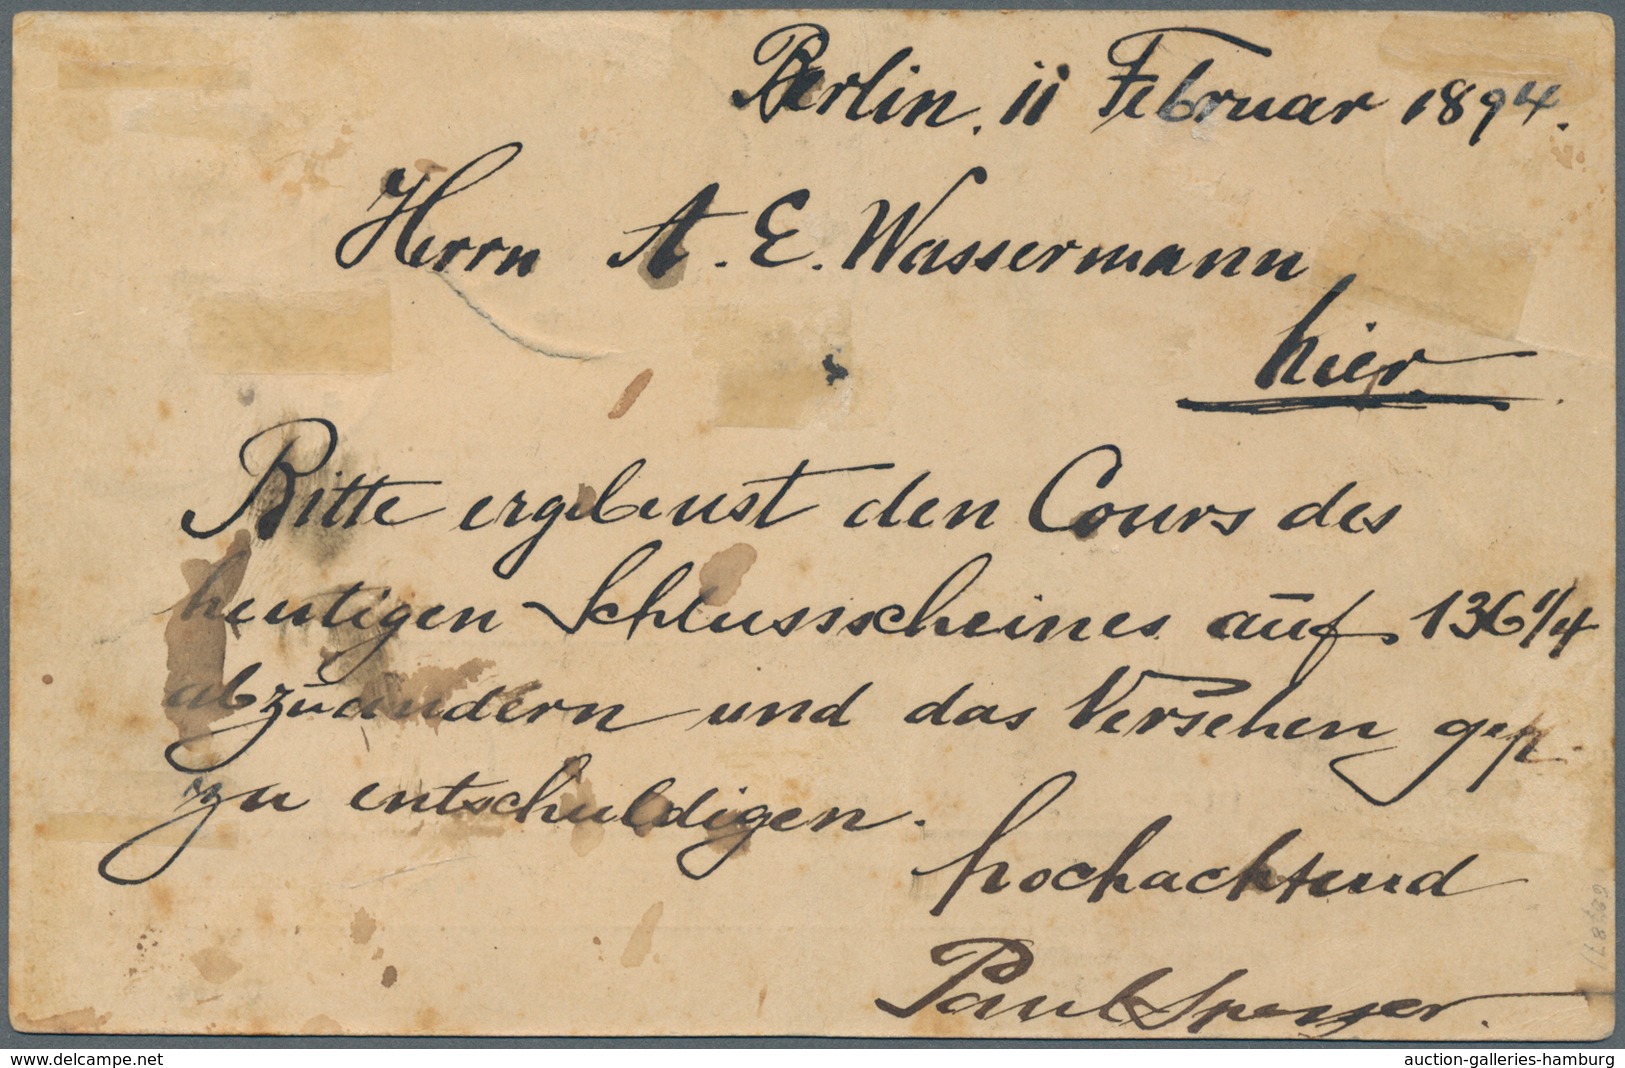 Berlin, 11 Februar 1894.
Herrn A. E. Wassermann
hier
Bitte ergebenst den Cours des
heutigen Schlussscheines auf 136 1/4
abzuändern und das Versehen gefl.
zu entschuldigen.
hochachtend
Paul
auction-galleries-hamburg
www.delcampe.net